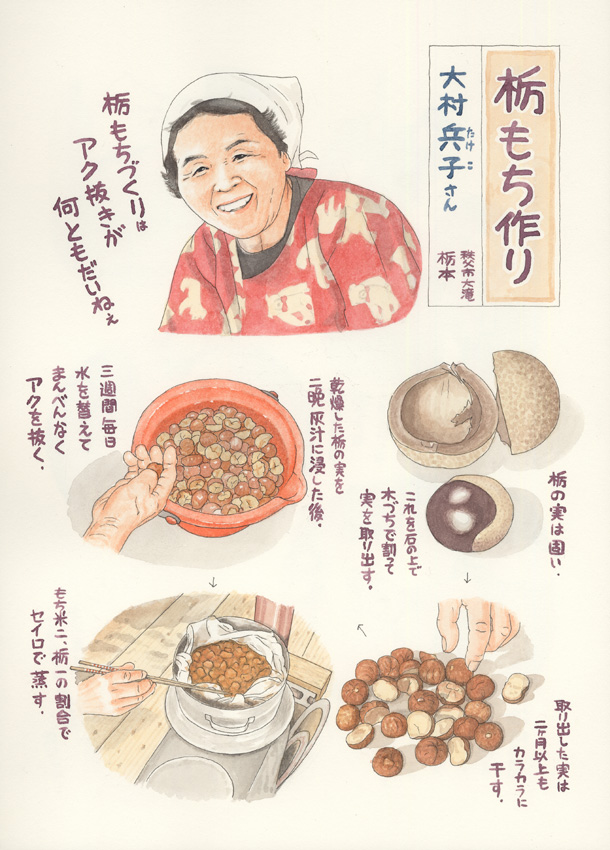 栃もち作り
大村兵子さん
たけこ
秩父市大滝
栃本
栃もちづくりは
アク抜きが
何ともだいねぇ
栃の実は固い.
これを石の上で
木づちで割って
実を取り出す.
取り出した実は
二ヶ月以上も
カラカラに
干す.
乾燥した栃の実を
二晩灰汁に浸した後.
三週間毎日
水を替えて
まんべんなく
アクを抜く.
もち米二、栃一の割合で
セイロで蒸す.